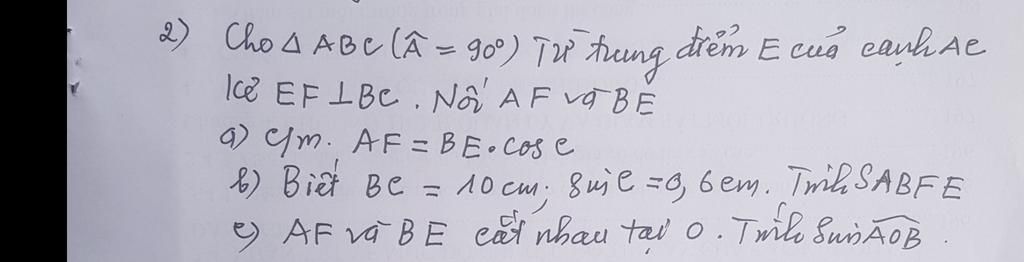 2) Cho Δ ABC (Â = 90°) Từ trung điểm E của cạnh AC
kẻ EF ⊥ BC. Nối AF và BE
a) c/m. AF = BE.cos C
b) Biết BC = 10 cm; sin C = 0,6 cm. Tính SABFE
c) AF và BE cắt nhau tại O. Tính sin AOB.